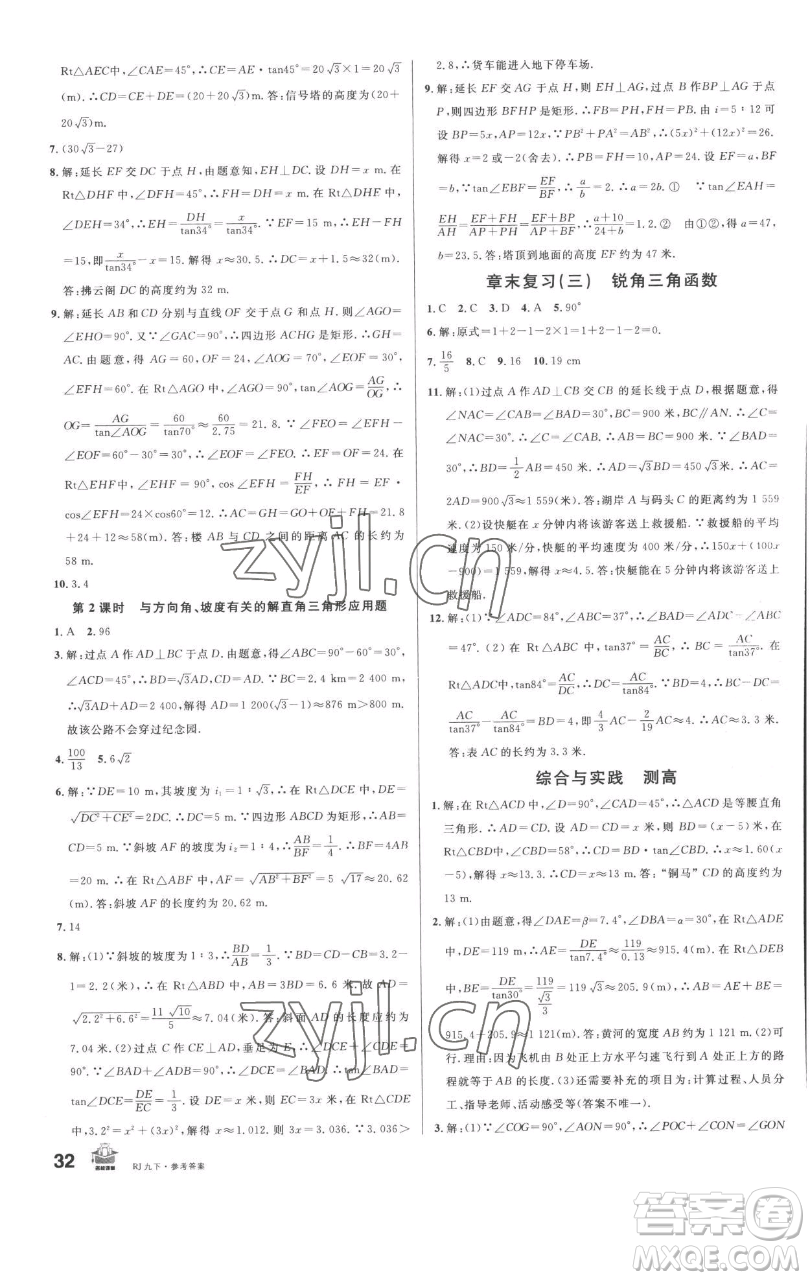 Rt△AEC中,∠CAE=45°,∴CE=AE·tan45°=20√3×1=20√3
(m).∴CD=CE+DE=(20+20√3)m.答:信号塔的高度为(20+
20√3)m.
7.(30√3-27)
8.解:延长EF交DC于点H,由题意知,EH⊥DC.设DH=x m.在
Rt△DHF中,∠DFH=45°,∴FH=DH=x m.在Rt△DHE中,
∠DEH=34°,∴EH=DH/tan34°=x/tan34°.∵EF=15 m,∴EH-FH
=15,即x/tan34°-x=15.解得x≈30.5.∴DC=DH+CH≈32(m).
答:拂云阁DC的高度约为32 m.
9.解:延长AB和CD分别与直线OF交于点G和点H,则∠AGO=
∠EHO=90°.又∵∠GAC=90°,∴四边形ACHG是矩形.∴GH=
AC.由题意,得AG=60,OF=24,∠AOG=70°,∠EOF=30°,
∠EFH=60°.在Rt△AGO中,∠AGO=90°,tan∠AOG=AG/OG,∴
OG=AG/tan∠AOG=60/tan70°≈60/2.75≈21.8.∵∠EFH=∠EOF+∠FEO,∴∠FEO=
∠EOF=60°-30°=30°.∴∠EOF=∠FEO.∴EF=OF=24.在
Rt△EHF中,∠EHF=90°,cos∠EFH=FH/EF,∴FH=EF·
cos∠EFH=24×cos60°=12.∴AC=GH=GO+OF+FH=21.8
+24+12≈58(m).答:楼AB与CD之间的距离AC的长约为
58 m.
10.3.4
第2课时 与方向角、坡度有关的解直角三角形应用题
1.A 2.96
3.解:过点A作AD⊥BC于点D,由题意,得∠ABC=90°-60°=30°,
∠ACD=45°,∴BD=√3AD,CD=AD.∵BC=2.4 km=2 400 m,
∴√3AD+AD=2 400,解得AD=1 200(√3-1)≈876 m>800 m.
故该公路不会穿过纪念园.
4.100/13 5.6√2
6.解:∵DE=10 m,其坡度为i₁=1∶√3,∴在Rt△DCE中,DE=
√(DC²+CE²)=2DC.∴DC=5.∵四边形ABCD为矩形,∴AB=
CD=5.∵斜坡AF的坡度为i₂=1∶4,∴AB/BF=1/4.∴BF=
20.∴在Rt△ABF中,AF=√(AB²+BF²)=5√17≈20.62
(m).答:斜坡AF的长度约为20.62 m.
7.14
8.解:(1)∵斜坡的坡度为1∶3,∴BD/AB=1/3.∵BD=CD-BC=3.2-
1=2.2(米),∴在Rt△ABD中,AB=3BD=6.6米.故AD=
√(2.2²+6.6²)=11√10/5≈7.04(米).答:斜面AD的长度应约为
7.04米.(2)过点C作CE⊥AD,垂足为E,∴∠DCE+∠CDE=
90°.∵∠BAD+∠ADB=90°,∴∠DCE=∠BAD.∴tan∠DCE=
tan∠BAD=DE/EC=1/3.设DE=x米,则EC=3x米,在Rt△CDE
中,3.2²=x²+(3x)²,解得x≈1.012.则3x=3.036.∵3.036>
2.8,∴货车能进入地下停车场.
9.解:延长EF交AG于点H,则EH⊥AG,过点B作BP⊥AG于点
P,则四边形BFHP是矩形.∴FB=PH,FH=PB.由i=5∶12可
设PB=5x,AP=12x.∵PB²+PA²=AB²,∴(5x)²+(12x)²=26².
解得x=2或-2(舍去).∴PB=FH=10,AP=24.设EF=a,BF
=b,∵tan∠EBF=EF/BF,∴a/b≈2.∴a=2b.① ∵tan∠EAH=
EH/AH=(EF+FH)/(AP+PH)=(EF+BP)/(AP+BF),∴(a+10)/(24+b)=1.2.② 由①②,得a=47,
b=23.5.答:塔顶到地面的高度EF约为47米.
章末复习(三) 锐角三角函数
1.C 2.C 3.D 4.A 5.90°
6.解:原式=1+2-1-2×1=1+2-1-2=0.
7.16/5 8.C 9.16 10.19 cm
11.解:(1)过点A作AD⊥CB交CB的延长线于点D,根据题意,得
∠NAC=∠CAB=∠BAD=30°,BC=900米,BC∥AN.∴∠C=
∠NAC=30°=∠BAC.∴AB=BC=900米.∵∠BAD=
30°,∴BD=1/2AB=450米.∴AD=√3BD=450√3米.∴AC=
2AD=900√3≈1 559(米).答:湖岸A与码头C的距离约为1 559
米.(2)设快艇在x分钟内将该游客送上救援船.∵救援船的平均
速度为150米/分,快艇的平均速度为400米/分,∴150x+(400x-
900)=1 559,解得x≈4.5.答:快艇能在5分钟内将该游客送上
救援船.
12.解:(1)∵∠ADC=84°,∠ABC=37°,∴∠BAD=∠ADC-∠ABC
=47°.(2)在Rt△ABC中,tan37°=AC/BC,∴BC=AC/tan37°.在
Rt△ADC中,tan84°=AC/DC,∴DC=AC/tan84°.∵BD=4,∴BC-DC=
AC/tan37°-AC/tan84°=BD=4,即4/3AC-2/19AC≈4.∴AC≈3.3米.
答:表AC的长约为3.3米.
综合与实践 测高
1.解:在Rt△ACD中,∠ACD=90°,∠CAD=45°,∴△ACD是等腰直角
三角形.∴AD=CD.设AD=CD=x,则BD=(x-5)米,在
Rt△CBD中,∠CBD=58°,∴CD=BD·tan58°.∴x=1.60(x
-5),解得x≈13.3.∴CD≈13米.答:“铜马”CD的高度约为
13 m.
2.解:(1)由题意,得∠DAE=β=7.4°,∠DBA=α=30°,在Rt△ADE
中,DE=119 m,∴AE=DE/tan7.4°≈119/0.13≈915.4(m),在Rt△BDE
中,BE=DE/tan30°=119/(√3/3)=119√3≈205.9(m),∴AB=AE+BE=
915.4+205.9≈1 121(m).答:黄河的宽度AB约为1 121 m.(2)可
行.理由:因为飞机由B处正上方水平匀速飞行到A处正上方的路
程就等于AB的长度.(3)还需要补充的项目为:计算过程、人员分
工、指导老师、活动感受等(答案不唯一).
3.解:(1)∵∠COG=90°,∠AON=90°,∴∠POC+∠CON=∠GON
32
RJ九下·参考答案
zyjl.cn
zyjl.cn
答案圈
MXQE.COM